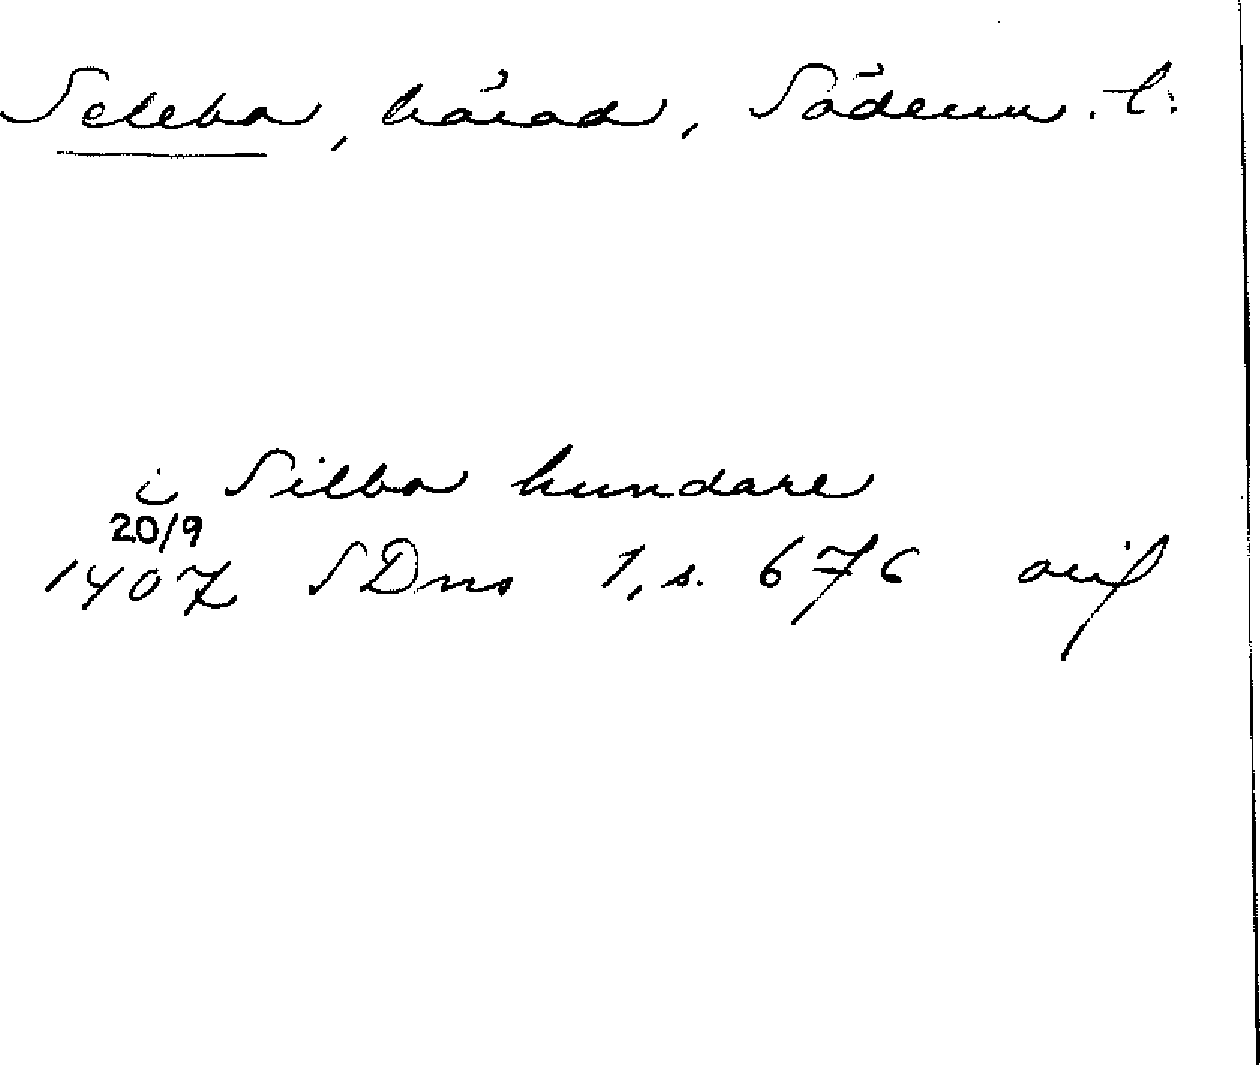 Selebo, härad, Söderm. l:
i Silbo hundare
20/9
1407 SDns 1, s. 676 orig